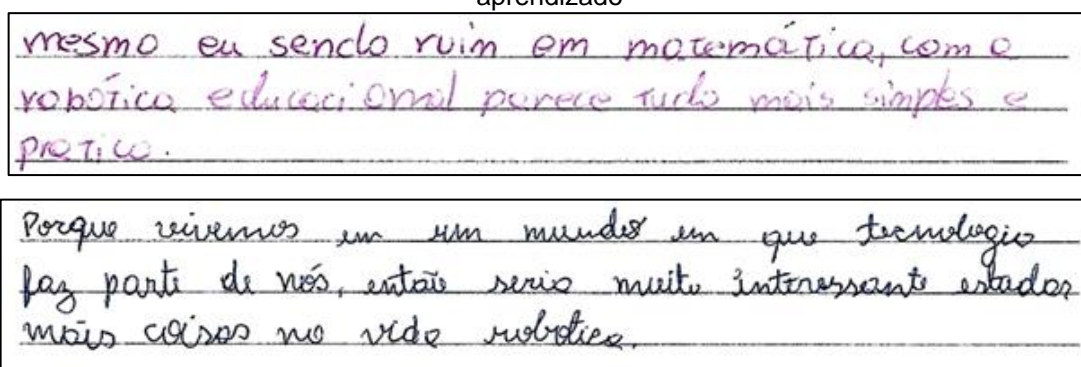 aprendizado
mesmo eu sendo ruim em matemática, com a
robótica educacional parece tudo mais simples e
pratico.
Porque vivemos em um mundo em que tecnologia
faz parte de nós, então seria muito interessante estudar
mais coisas na vida robotica.